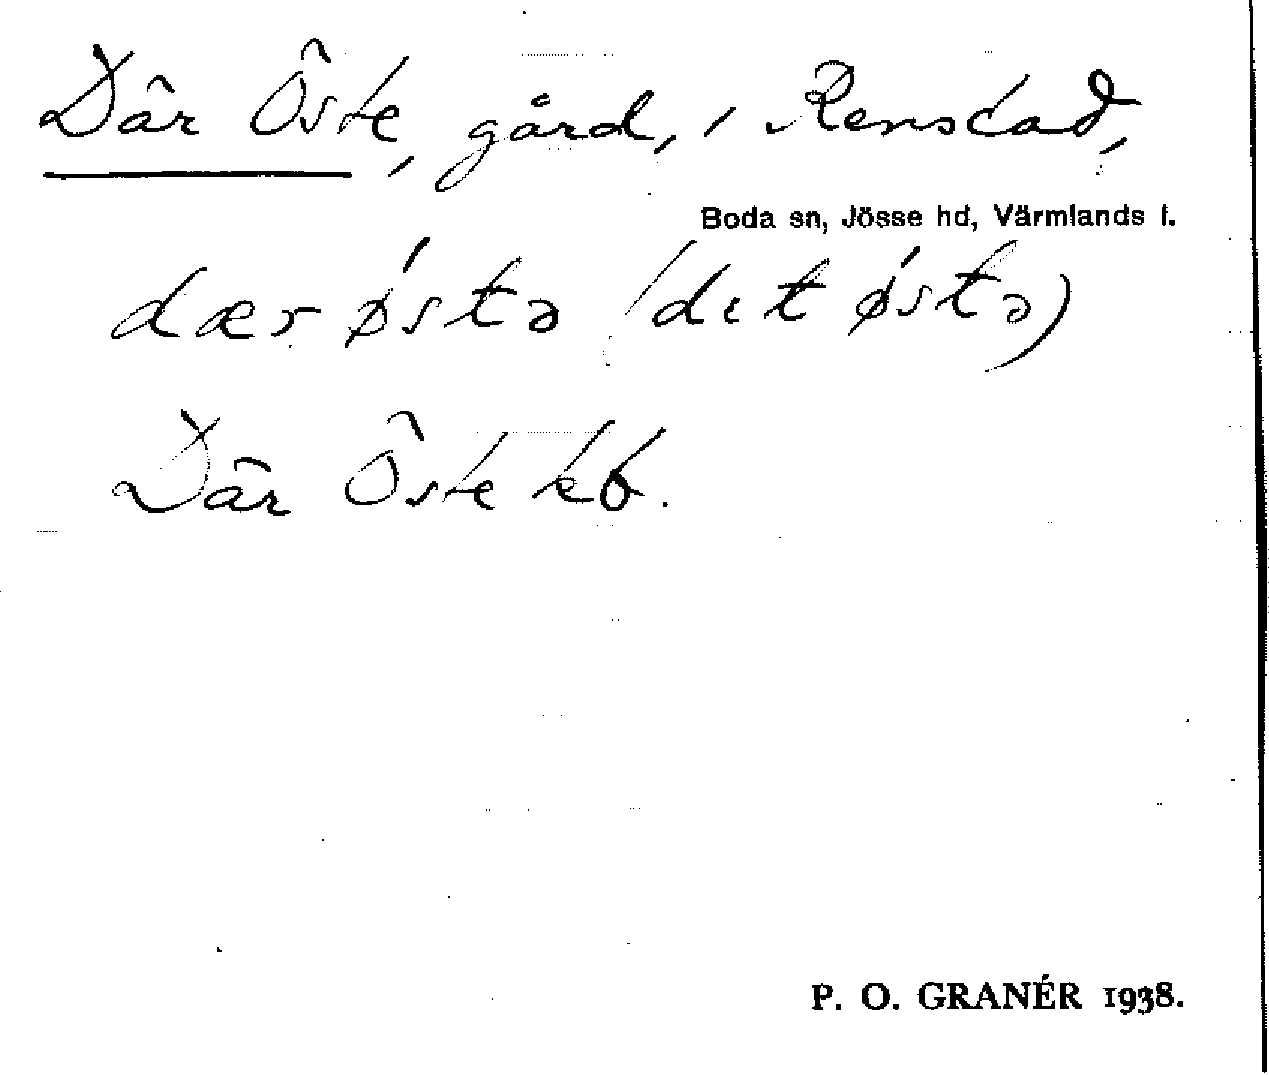 Där Öste, gård, i Renstad,
Boda sn, Jösse hd, Värmlands l.
dær østə (dɩt østə)
Där Öste kb.
P. O. GRANÉR 1938.